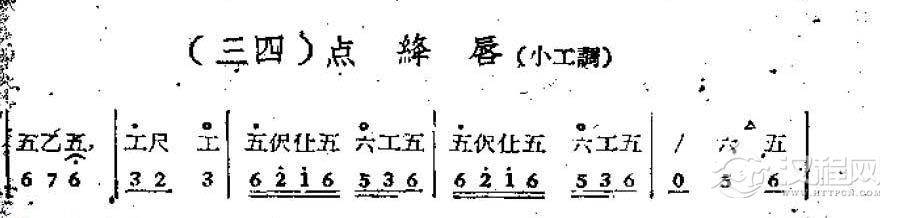 （三四）点 絳 唇（小工調）
五乙五， 工尺 工 五伬仩五 六工五 五伬仩五 六工五 / 六 五
6 7 6 3 2 3 6 2 1 6 5 3 6 6 2 1 6 5 3 6 0 5 6
汉程网
WWW.HTTPCN.COM